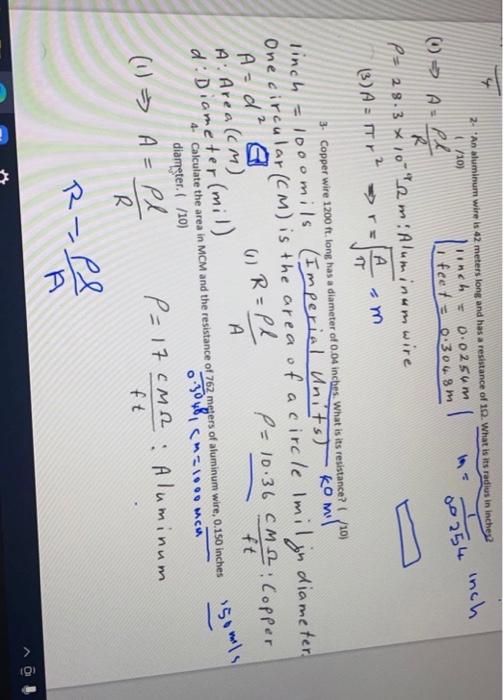 4
2- An aluminum wire is 42 meters long and has a resistance of 1Ω. What is its radius in inches?
( /10)
1 inch = 0.0254m
1 feet = 0.3048m
m = 1/0.0254 inch
(1) ⇒ A = ρl/R
ρ = 28.3 × 10⁻⁹ Ω m : Aluminum wire
(3) A = π r² ⇒ r = √(A/π) = m
3- Copper wire 1200 ft. long has a diameter of 0.04 inches. What is its resistance? ( /10)
40 mil
1 inch = 1000 mils (Imperial Units)
One circular (CM) is the area of a circle 1 mil in diameter.
A = d²
(1) R = ρl/A
ρ = 10.36 CMΩ/ft : Copper
A: Area (CM)
d: Diameter (mil)
4- Calculate the area in MCM and the resistance of 762 meters of aluminum wire, 0.150 inches
diameter. ( /10)
0.3048
150 mils
(1) ⇒ A = ρl/R
ρ = 17 CMΩ/ft : Aluminum
R = ρl/A